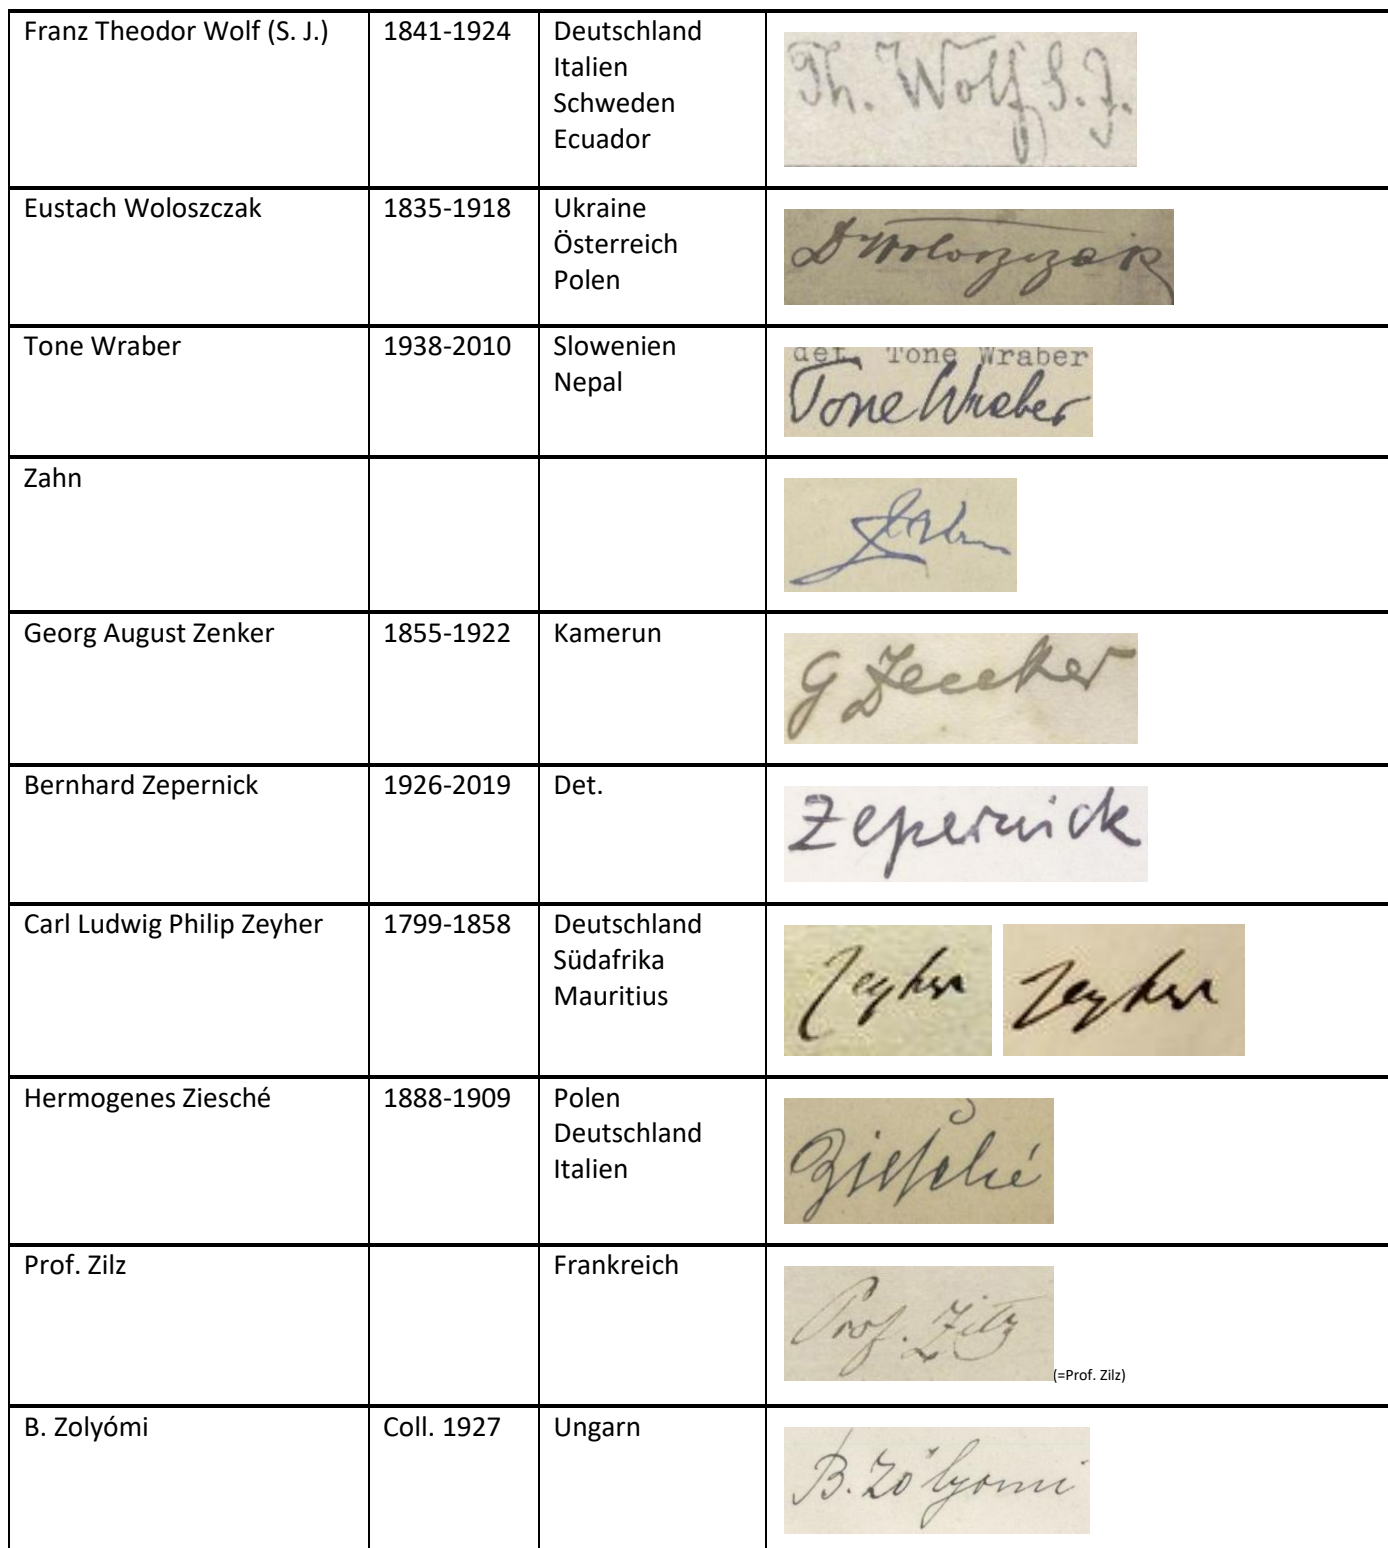 Franz Theodor Wolf (S. J.)
1841-1924
Deutschland
Italien
Schweden
Ecuador
Th. Wolf S. J.
Eustach Woloszczak
1835-1918
Ukraine
Österreich
Polen
D Woloszczak
Tone Wraber
1938-2010
Slowenien
Nepal
det. Tone Wraber
Tone Wraber
Zahn
Zahn
Georg August Zenker
1855-1922
Kamerun
G Zenker
Bernhard Zepernick
1926-2019
Det.
Zepernick
Carl Ludwig Philip Zeyher
1799-1858
Deutschland
Südafrika
Mauritius
Zeyher
Zeyher
Hermogenes Ziesché
1888-1909
Polen
Deutschland
Italien
Ziesché
Prof. Zilz
Frankreich
Prof. Zilz
(=Prof. Zilz)
B. Zolyómi
Coll. 1927
Ungarn
B. Zólyomi